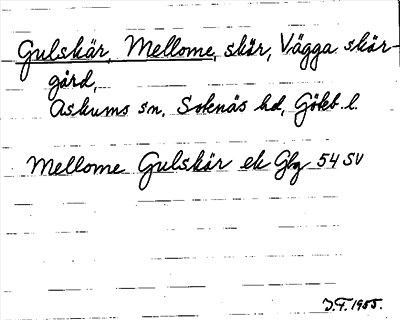 Gulskär, Mellome, skär, Vägga skär-
gård,
Askums sn, Sotenäs hd, Götb. l.
Mellome Gulskär ek Gbg 54 SV
J.F. 1955.